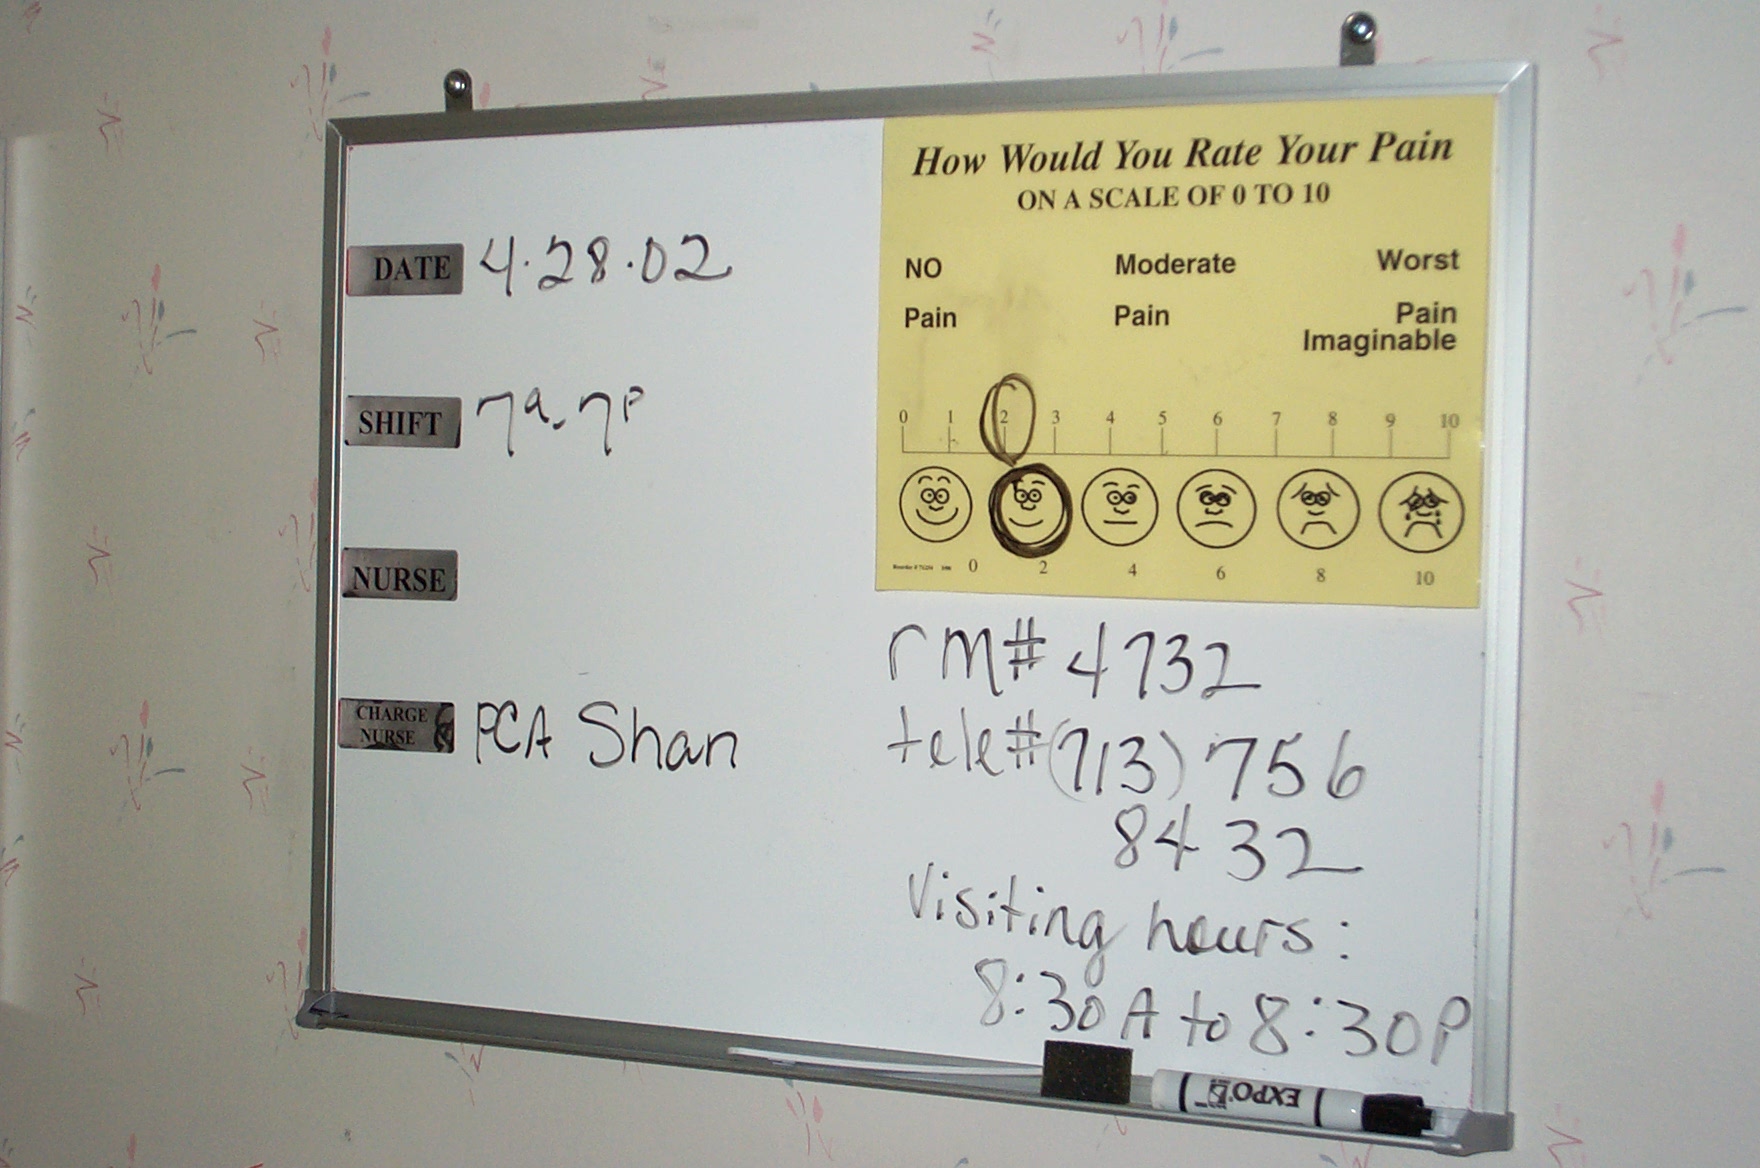 DATE 4.28.02
SHIFT 7a-7P
NURSE
CHARGE NURSE PCA Shan
How Would You Rate Your Pain
ON A SCALE OF 0 TO 10
NO Moderate Worst
Pain Pain Pain
Imaginable
0 1 2 3 4 5 6 7 8 9 10
0 2 4 6 8 10
rm# 4732
tele# (713) 756
8432
Visiting hours:
8:30A to 8:30P
EXPO